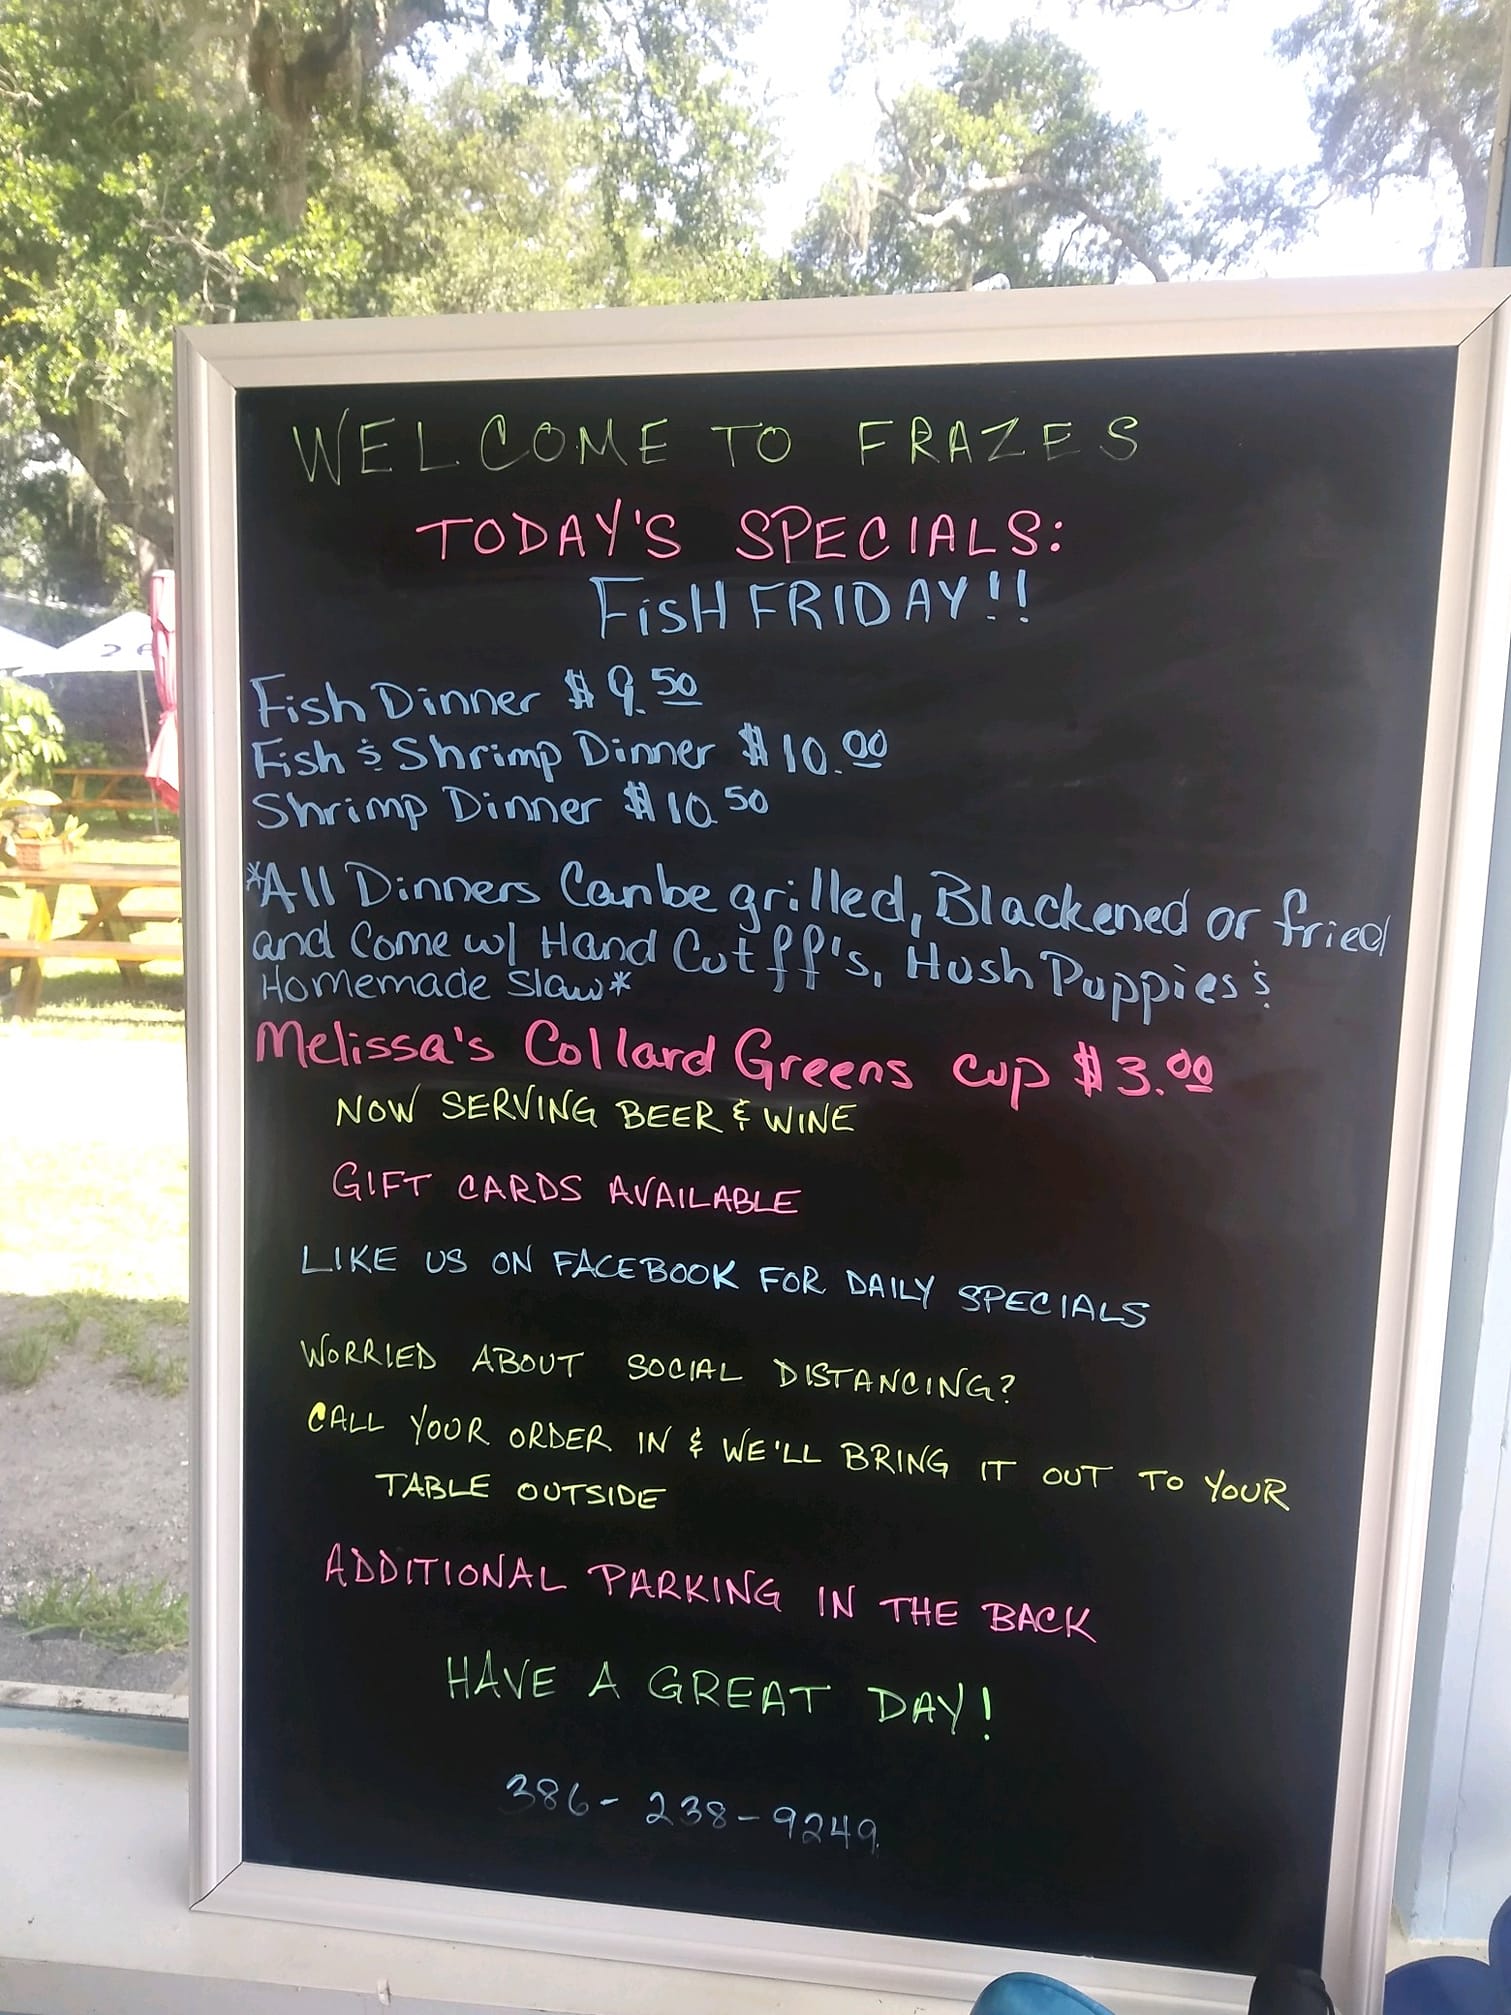 WELCOME TO FRAZES
TODAY'S SPECIALS:
FisH FRIDAY!!
Fish Dinner $9.50
Fish & Shrimp Dinner $10.00
Shrimp Dinner $10.50
*All Dinners Can be grilled, Blackened or fried
and Come w/ Hand Cut ff's, Hush Puppies &
Homemade Slaw*
Melissa's Collard Greens cup $3.00
NOW SERVING BEER & WINE
GIFT CARDS AVAILABLE
LIKE US ON FACEBOOK FOR DAILY SPECIALS
WORRIED ABOUT SOCIAL DISTANCING?
CALL YOUR ORDER IN & WE'LL BRING IT OUT TO YOUR
TABLE OUTSIDE
ADDITIONAL PARKING IN THE BACK
HAVE A GREAT DAY!
386-238-9249